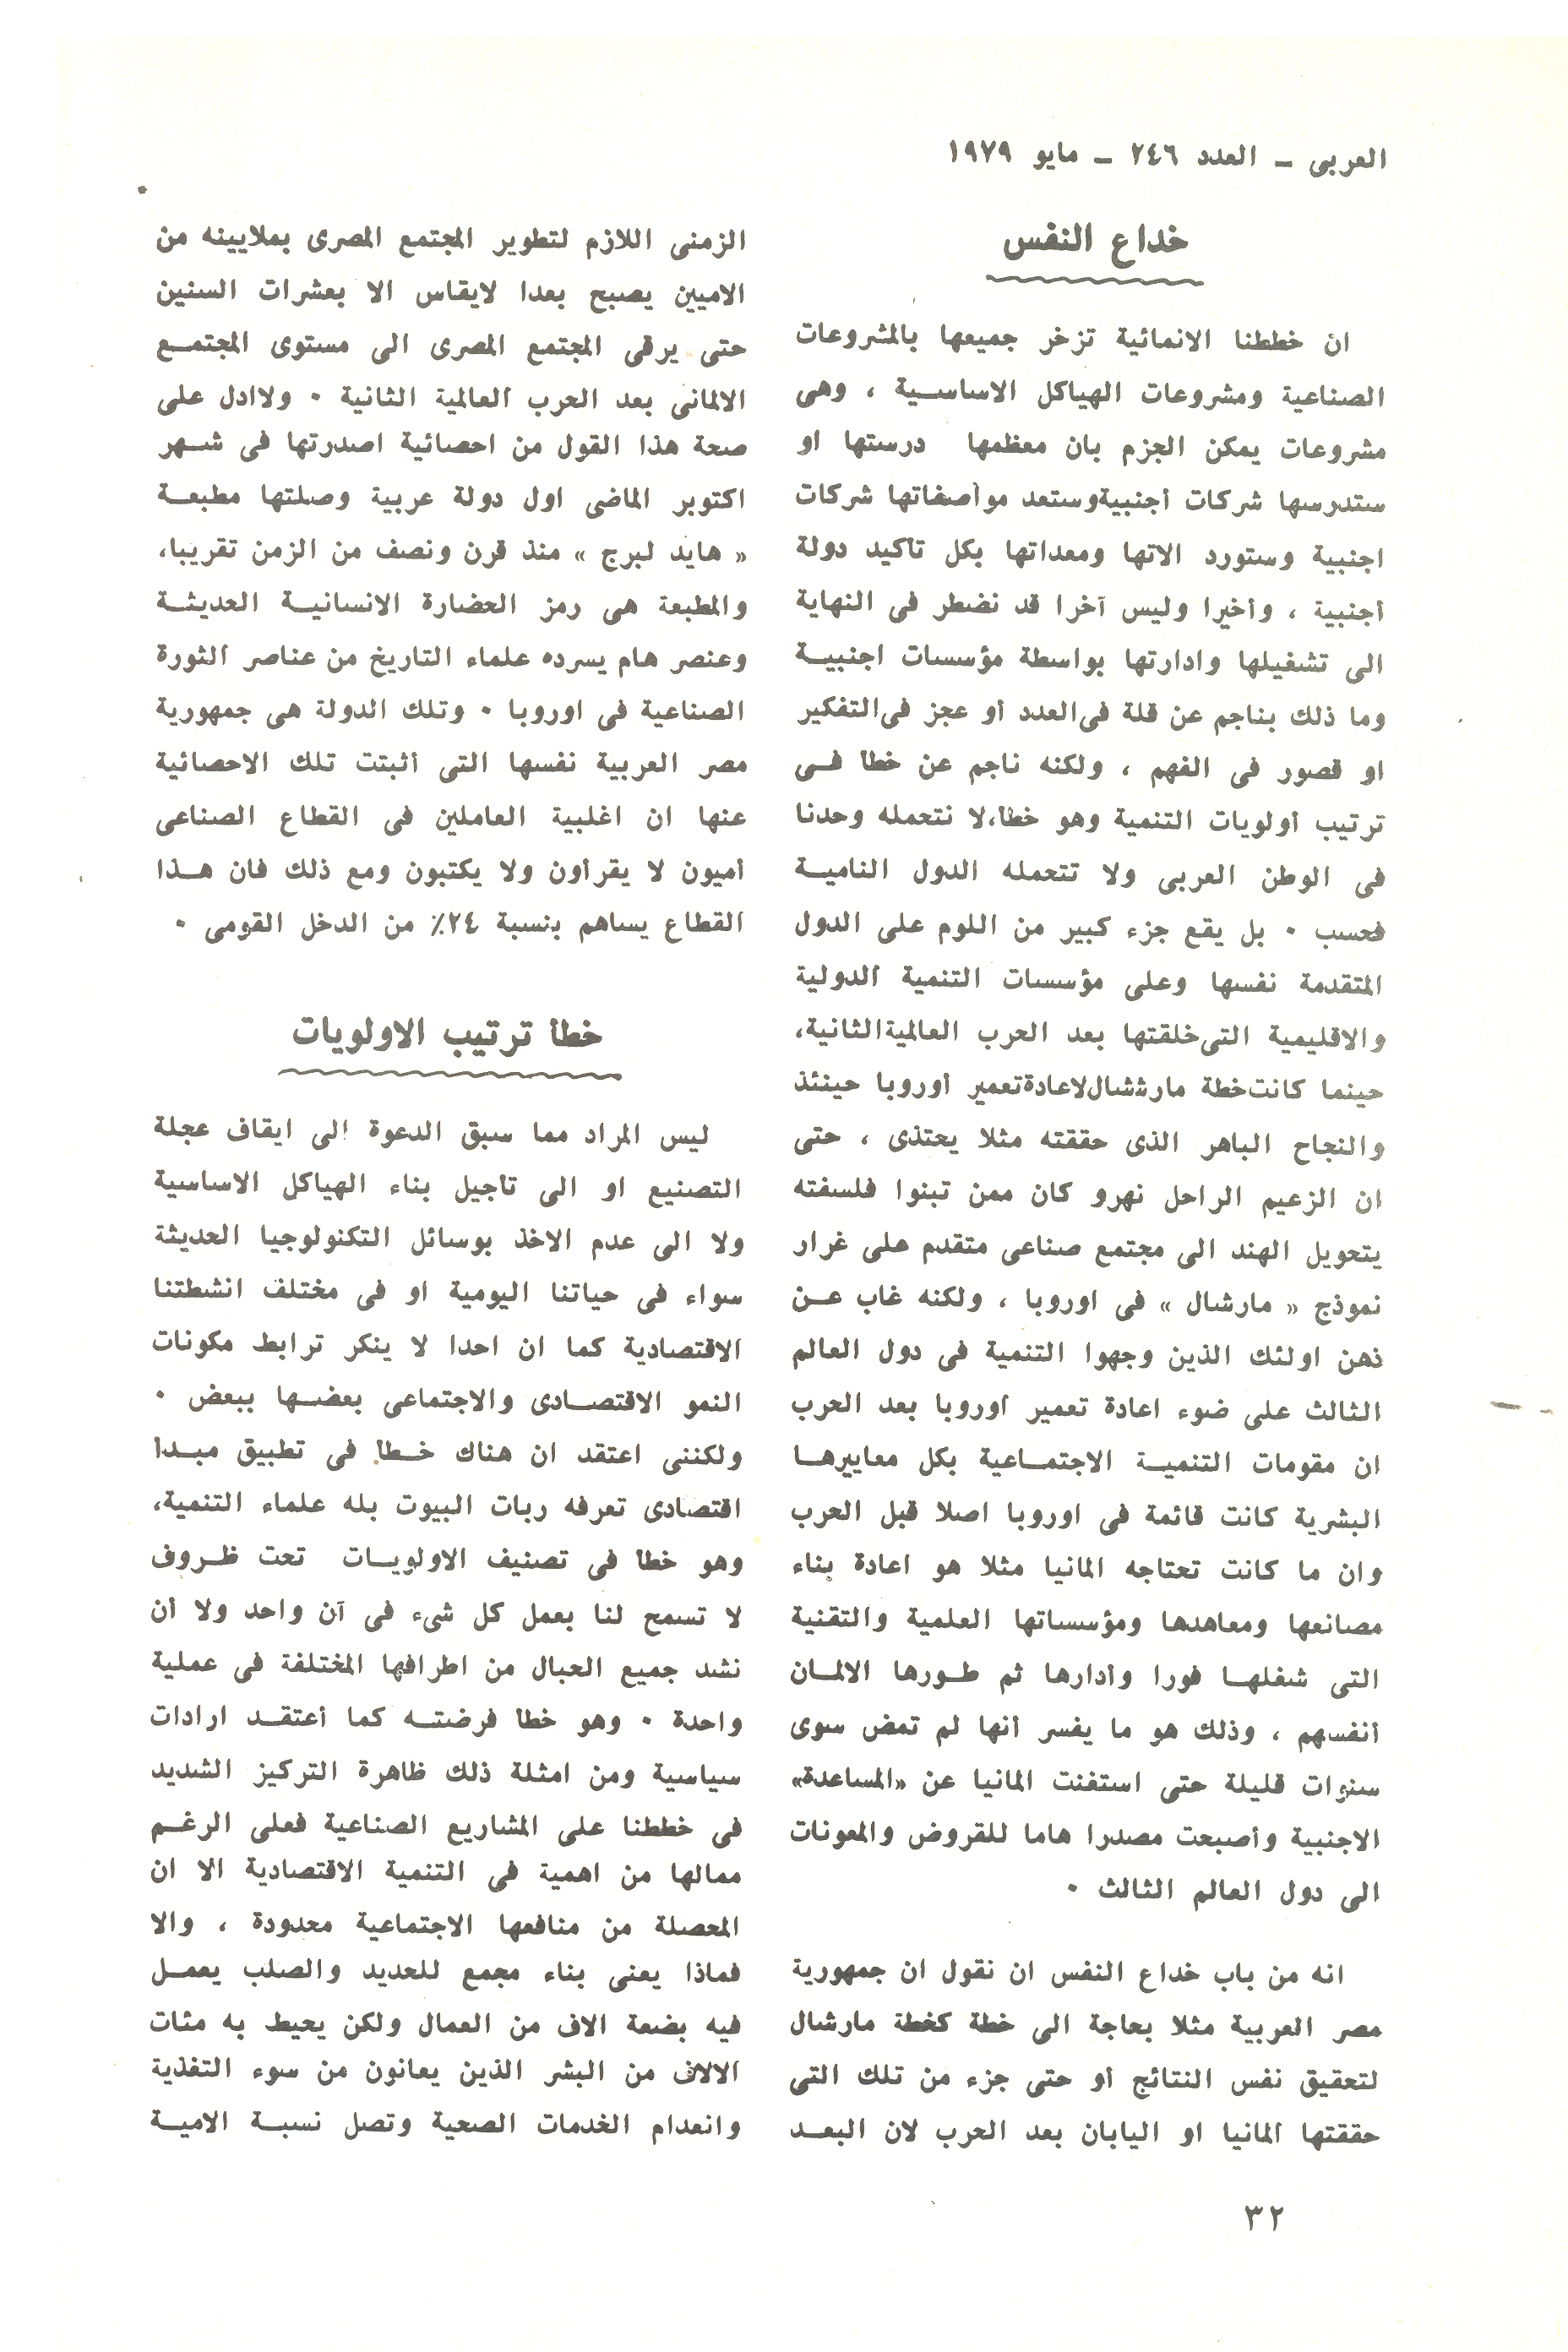 العربى ـ العدد ٢٤٦ ـ مايو ١٩٧٩
خداع النفس
ان خططنا الانمائية تزخر جميعها بالمشروعات
الصناعية ومشروعات الهياكل الاساسـية ، وهى
مشروعات يمكن الجزم بان معظمها درستها او
ستدرسها شركات أجنبية وستعد مواصفاتها شركات
اجنبية وستورد الاتها ومعداتها بكل تاكيد دولة
أجنبية ، وأخيرا وليس آخرا قد نضطر فى النهاية
الى تشغيلها وادارتها بواسطة مؤسسات اجنبيـة
وما ذلك بناجم عن قلة فى العدد أو عجز فى التفكير
او قصور فى الفهم ، ولكنه ناجم عن خطأ فـى
ترتيب أولويات التنمية وهو خطأ، لا نتحمله وحدنا
فى الوطن العربى ولا تتحمله الدول الناميـة
فحسب ٠ بل يقع جزء كبير من اللوم على الدول
المتقدمة نفسها وعلى مؤسسات التنمية الدولية
والاقليمية التى خلقتها بعد الحرب العالمية الثانية،
حينما كانت خطة مارششال لاعادة تعمير أوروبا حينئذ
والنجاح الباهر الذى حققته مثلا يحتذى ، حتى
ان الزعيم الراحل نهرو كان ممن تبنوا فلسفته
يتحويل الهند الى مجتمع صناعى متقدم على غرار
نموذج « مارشال » فى اوروبا ، ولكنه غاب عـن
ذهن اولئك الذين وجهوا التنمية فى دول العالم
الثالث على ضوء اعادة تعمير أوروبا بعد الحرب
ان مقومات التنميـة الاجتمـاعية بكل معاييرهـا
البشرية كانت قائمة فى اوروبا اصلا قبل الحرب
وان ما كانت تحتاجه المانيا مثلا هو اعادة بناء
مصانعها ومعاهدها ومؤسساتها العلمية والتقنية
التى شغلهـا فورا وأدارها ثم طـورها الالمـان
أنفسهم ، وذلك هو ما يفسر أنها لم تمض سوى
سنوات قليلة حتى استغنت المانيا عن «المساعدة»
الاجنبية وأصبحت مصدرا هاما للقروض والمعونات
الى دول العالم الثالث ٠
انه من باب خداع النفس ان نقول ان جمهورية
مصر العربية مثلا بحاجة الى خطة كخطة مارشال
لتحقيق نفس النتائج أو حتى جزء من تلك التى
حققتها ألمانيا او اليابان بعد الحرب لان البعـد
الزمنى اللازم لتطوير المجتمع المصرى بملايينه من
الاميين يصبح بعدا لايقاس الا بعشرات السنين
حتى يرقى المجتمع المصرى الى مستوى المجتمـع
الالمانى بعد الحرب العالمية الثانية ٠ ولاادل على
صحة هذا القول من احصائية اصدرتها فى شـهر
اكتوبر الماضى اول دولة عربية وصلتها مطبعـة
« هايد لبرج » منذ قرن ونصف من الزمن تقريبا،
والمطبعة هى رمز الحضارة الانسانيـة الحديثـة
وعنصر هام يسرده علماء التاريخ من عناصر الثورة
الصناعية فى اوروبا ٠ وتلك الدولة هى جمهورية
مصر العربية نفسها التى أثبتت تلك الاحصائية
عنها ان اغلبية العاملين فى القطاع الصناعى
أميون لا يقرأون ولا يكتبون ومع ذلك فان هـذا
القطاع يساهم بنسبة ٢٤٪ من الدخل القومى ٠
خطأ ترتيب الاولويات
ليس المراد مما سبق الدعوة الى ايقاف عجلة
التصنيع او الى تاجيل بناء الهياكل الاساسية
ولا الى عدم الاخذ بوسائل التكنولوجيا الحديثة
سواء فى حياتنا اليومية او فى مختلف انشطتنا
الاقتصادية كما ان احدا لا ينكر ترابط مكونات
النمو الاقتصـادى والاجتماعى بعضـها ببعض ٠
ولكننى اعتقد ان هناك خـطا فى تطبيق مبـدا
اقتصادى تعرفه ربات البيوت بله علماء التنمية،
وهو خطا فى تصنيف الاولويـات تحت ظـروف
لا تسمح لنا بعمل كل شىء فى آن واحد ولا أن
نشد جميع الحبال من اطرافها المختلفة فى عملية
واحدة ٠ وهو خطا فرضتـه كما أعتقـد ارادات
سياسية ومن امثلة ذلك ظاهرة التركيز الشديد
فى خططنا على المشاريع الصناعية فعلى الرغـم
ممالها من اهمية فى التنمية الاقتصادية الا ان
المحصلة من منافعها الاجتماعية محدودة ، والا
فماذا يعنى بناء مجمع للحديد والصلب يعمـل
فيه بضعة الاف من العمال ولكن يحيط به مئات
الالاف من البشر الذين يعانون من سوء التغذية
وانعدام الخدمات الصحية وتصل نسبـة الاميـة
٣٢